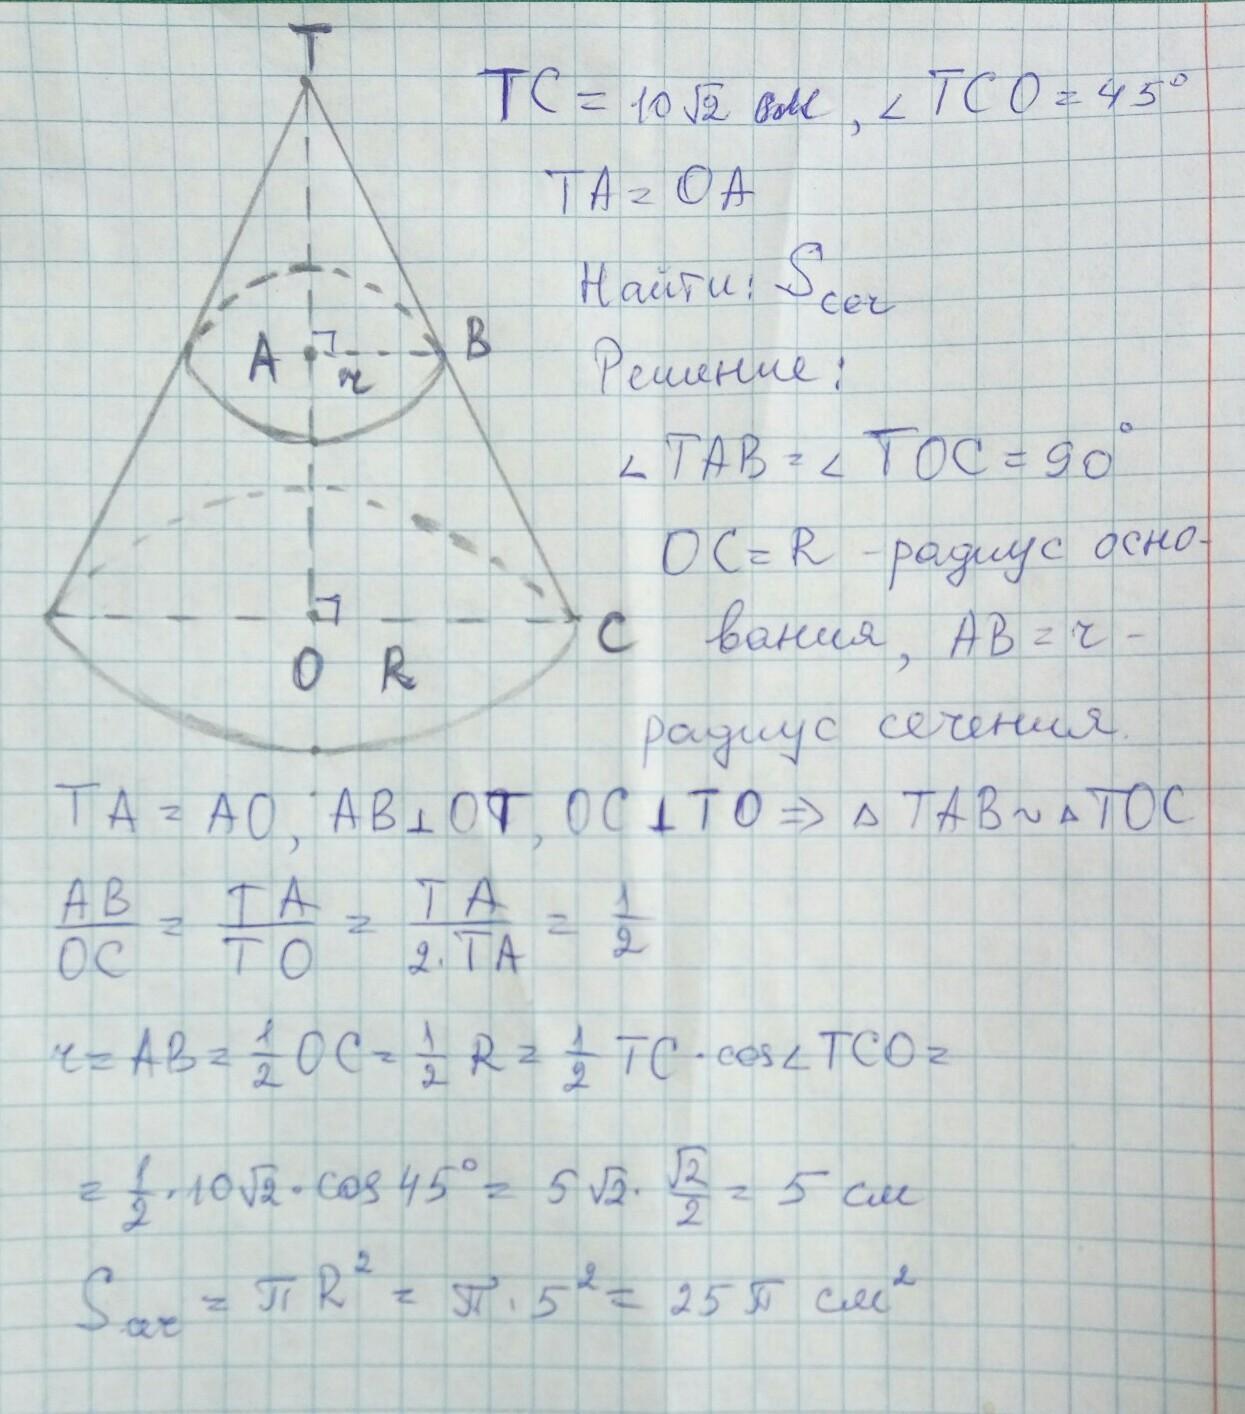 T
TC = 10√2 см, ∠TCO = 45°
TA = OA
Найти: Sсеч
A r B
Решение:
∠TAB = ∠TOC = 90°
OC = R - радиус осно-
O R C
вания, AB = r -
радиус сечения.
TA = AO, AB ⊥ OT, OC ⊥ TO ⇒ △TAB ~ △TOC
AB/OC = TA/TO = TA/2·TA = 1/2
r = AB = 1/2 OC = 1/2 R = 1/2 TC · cos∠TCO =
= 1/2 · 10√2 · cos 45° = 5√2 · √2/2 = 5 см
Sсеч = πR² = π · 5² = 25π см²